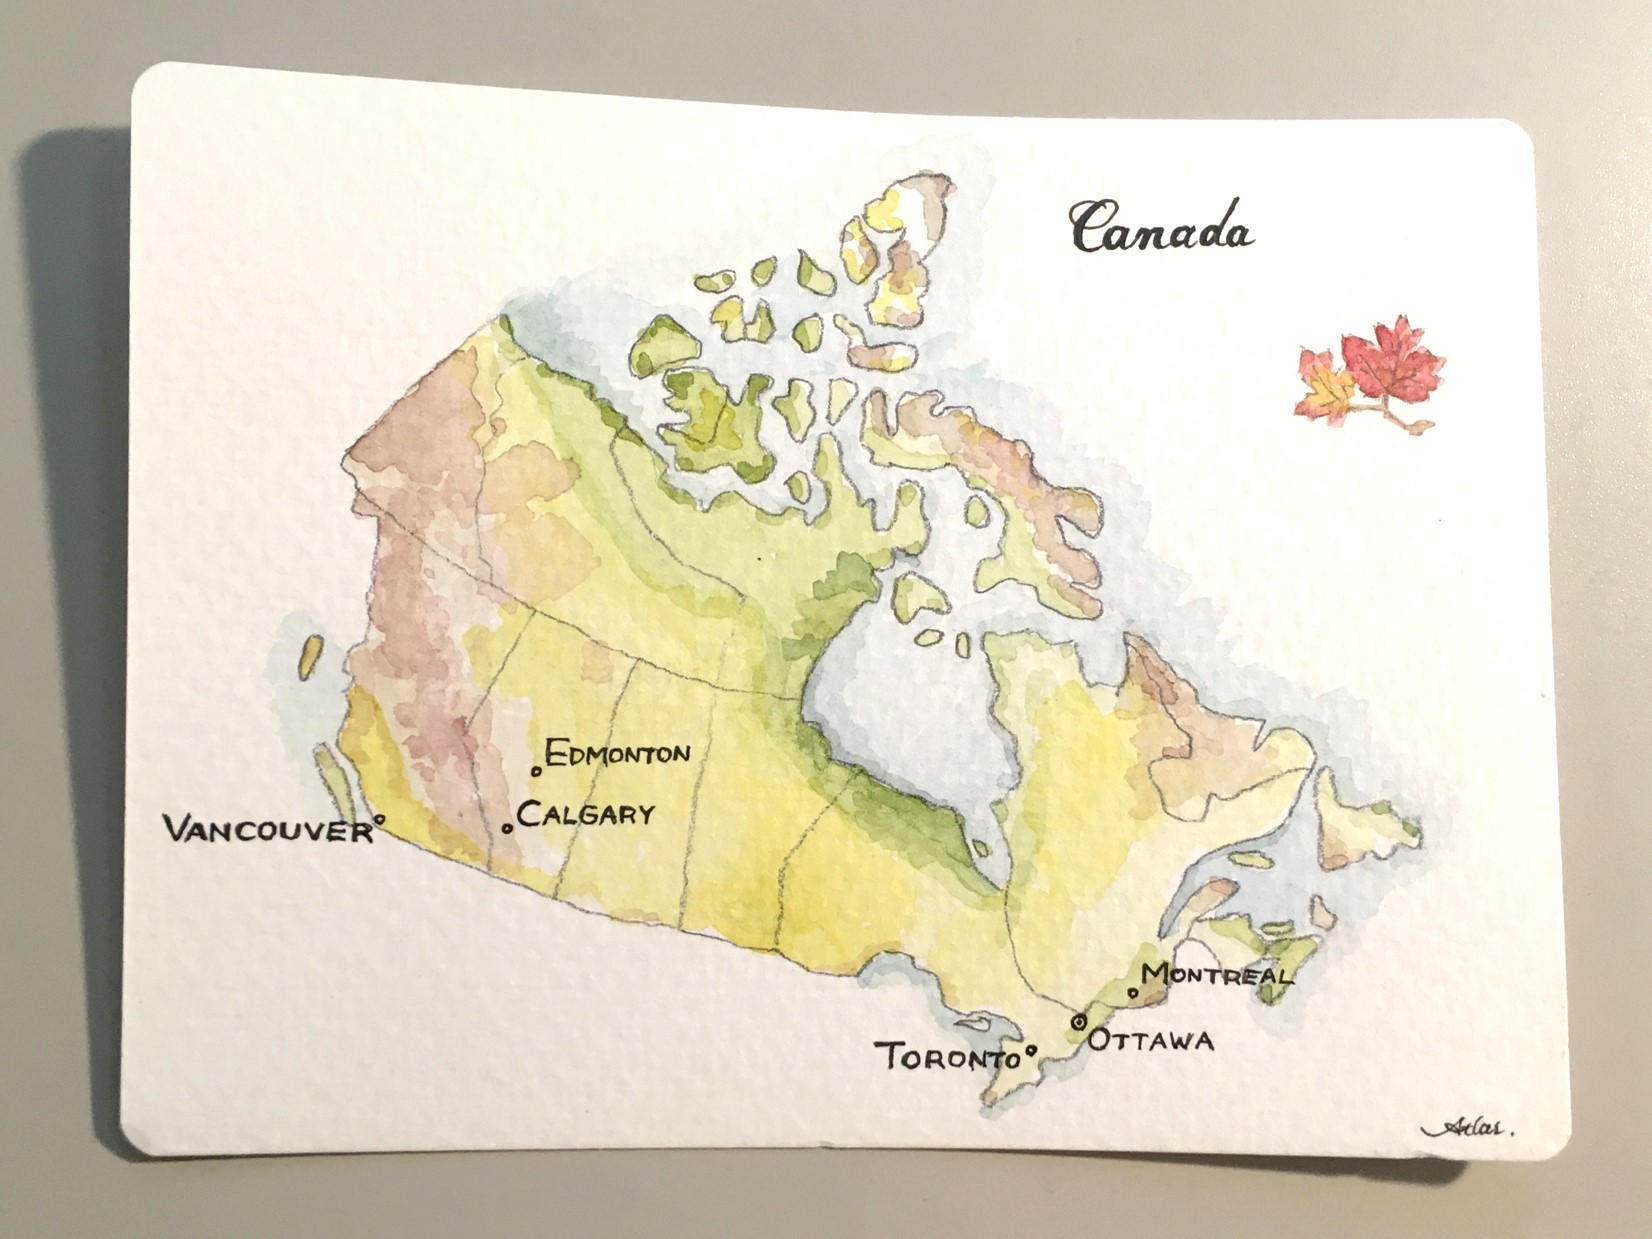 Canada
EDMONTON
CALGARY
VANCOUVER
MONTREAL
OTTAWA
TORONTO
Atlas.